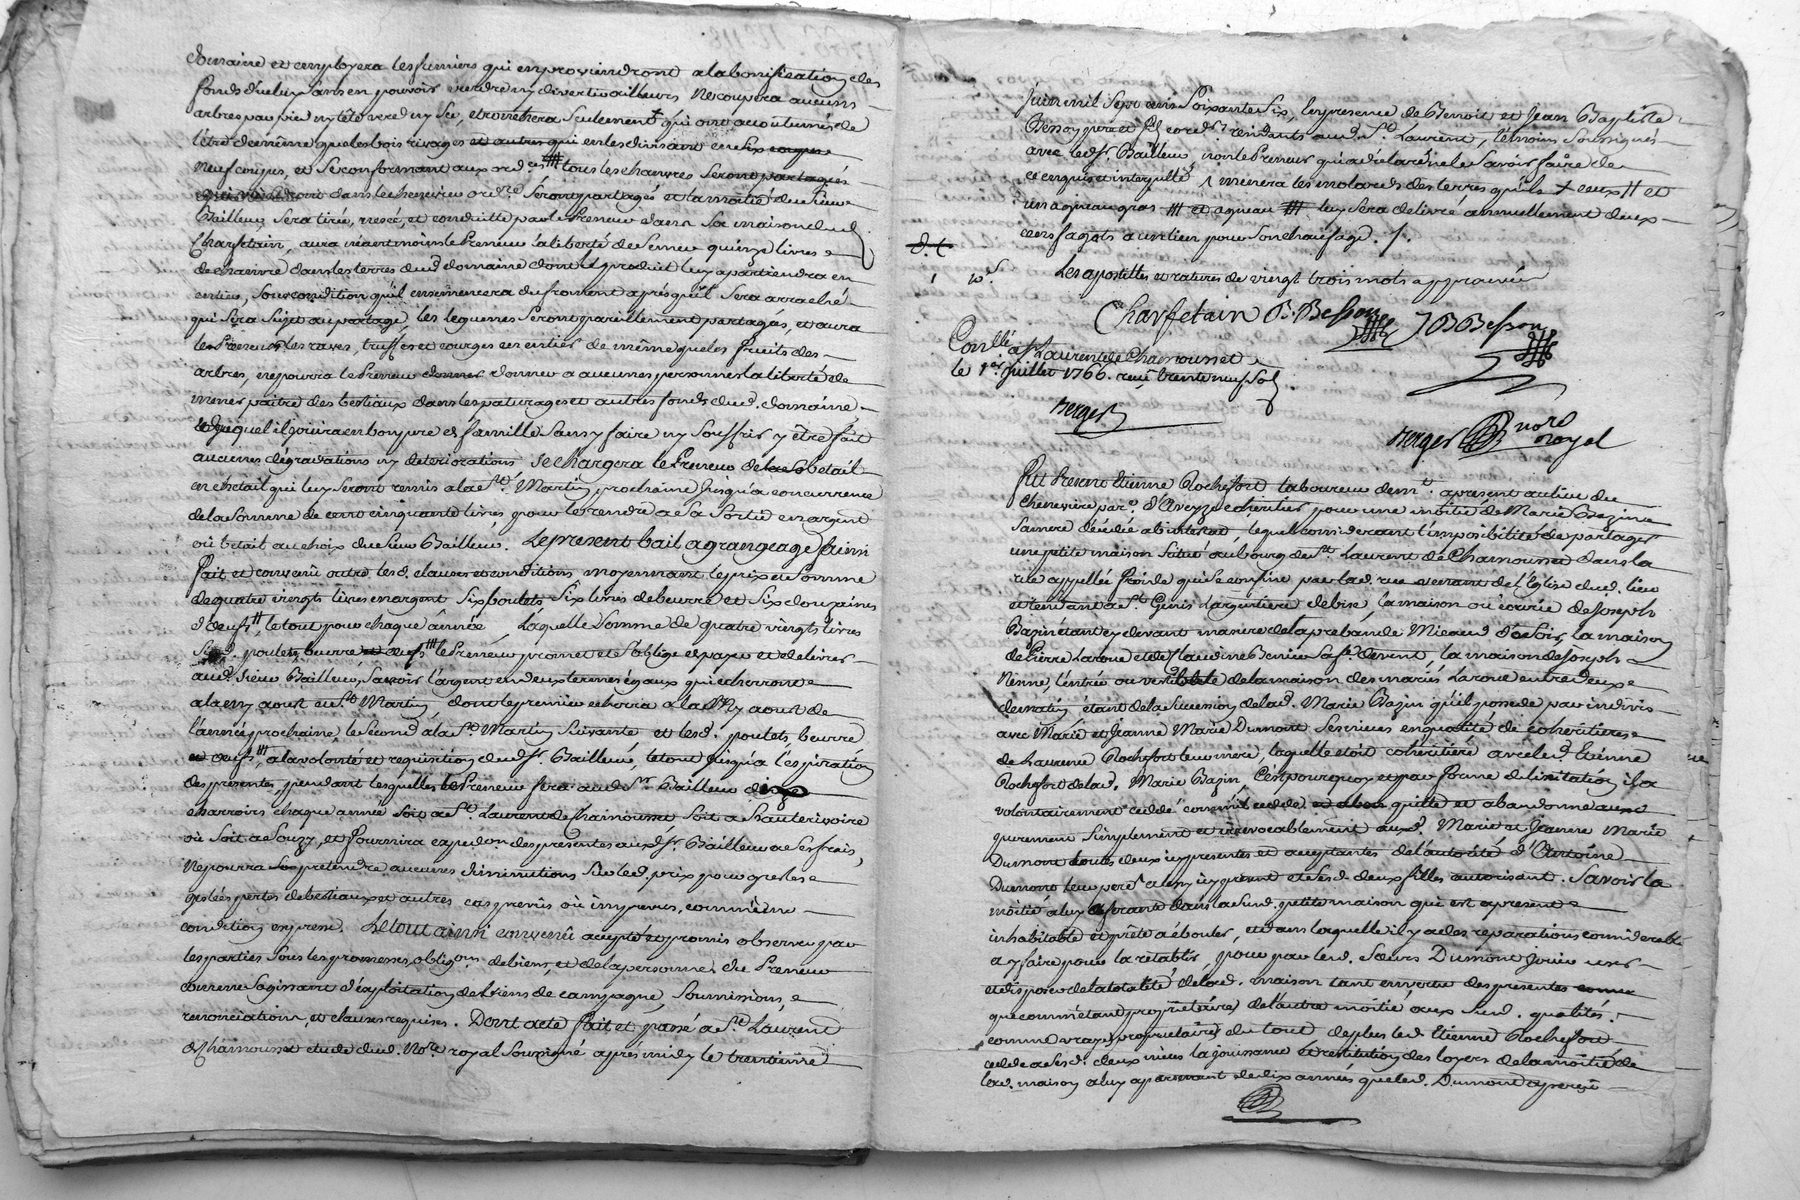 domaine et employera les fumiers qui en proviendront a la bonification des
fonds d'iceluy sans en pouvoir vendre ny divertir ailleurs Ne coupera aucuns
arbres par pied ny tête verd ny sec, etronchera seulement qui ont accoutumés de
l'être de même que les bois rivages et autres qui en les divisant en six coupes
neuf coupes, et se conformant aux ord.ces tous les chanvres seront partagés
dans le seront partagés et la moitié du sieur
Bailleux sera tirée, et conduitte par le Preneur dans sa maison dud.
Charfetain, aura néantmoins le Preneur la liberté de semer quinze livres
de chanvre dans les terres dud. domaine dont le produit luy apartiendra en
entier, sous condition qu'il ensemencera du froment après qu'il sera arraché
qui sera sujet au partage, les legumes seront pareillement partagés, et aura
le Preneur les raves, truffes et courges en entier de même que les fruits des
arbres, ne pourra le Preneur donner a aucunes personnes la liberté de
mener paitre des bestiaux dans les paturages et autres fonds dud. domaine
duquel il jouira en bon pere de famille sans y faire ny souffrir y être fait
aucunes dégradations ny deteriorations se chargera le Preneur de betail
en bétail qui luy seront remis a la St. Martin prochaine jusqu'a concurrence
de la somme de cent cinquante livres pour les rendre a sa sortie en argent
où betail au choix du sieur Bailleux. Le present bail a grangeage fainsi
fait et convenû outre lesd. clauses et conditions moyennant le prix et somme
de quatre vingts livres en argent six poulets six livres de beurre et six douzaines
d'oeufs, le tout pour chaque année, Laquelle somme de quatre vingts livres
poulets, beurre et oeufs le Preneur promet et s'oblige de payer et delivrer
aud. sieur Bailleux, savoir l'argent en deux termes égaux qui echerront
a la my aoust et St. Martin, dont le premier echerra a la My aoust de
l'année prochaine, le second a la St. Martin suivante et lesd. poulets beurre
et oeufs, a la volonté et requisition dud. Sr. Bailleux, le tout jusqu'a l'expiration
des presentes, pendant lesquelles le Preneur fera aud. Sr. Bailleux
charrois chaque année soit a St. Laurent de Chamousset soit a hauterivoire
où soit a Souzy, et fournira expedon. des presentes aud. Sr. Bailleux a ses frais,
Ne pourra pretendre aucunes diminutions sur led. prix pour gresles
gelées pertes de bestiaux et autres cas prevûs où imprevus, comme une
condition expresse. Le tout ainsi convenû accepté et promis observer par
les parties sous les promesses, obligaons. de biens, et de la personne du Preneur
comme s'agissant d'exploitation de biens de campagne, soumissions,
renonciations, et clauses requises. Dont acte fait et passé a St. Laurent
de Chamousset etude dud. Nore. royal soussigné après midy le trentieme
juin mil sept cens soixante six, En presence de Benoit et Jean Baptiste
Besson pere et fils residants aud. St. Laurent, témoins soussignés
avec led. Sr. Bailleux, non le Preneur qui a déclaré ne le savoir faire de
ce enquis et interpellé menera les molards des terres qu'ils eaux et
un agneau gras et agneau luy sera delivré annuellement deux
cens fagots au un lien pour son chaufage
Les apostilles et ratures de vingt trois mots approuvés
Charfetain B. Besson J B Besson
Conllé a St Laurent de Chamousset
le 1er juillet 1766. reçû trente neuf sols
Berger
Berger nore royal
Fut Present Etienne Rochefort laboureur demt. apresent au lieu du
Chenevière par. d'Aveyze héritier pour une moitié de Marie Bazin
sa mere décédée ab intestat, lequel considerant l'impossibilité de partager
une petite maison située au bourg de St. Laurent de Chamousset dans la
rue appellée froide qui se confine par lad. rue venant de l'Eglise dud. lieu
et tendant a St. Genis l'argentiere de bise, la maison où écurie de Joseph
Bazin étant cy devant masure de la prebande Micaud de soir, la maison
de Pierre Laroue et de Claudine Benier sa fe. de vent, la maison de Joseph
Nenne, l'entrée ou vestibule de la maison des mariés Laroue entre deux
de matin, étant de la succession de lad. Marie Bazin qu'il possede par indivis
avec Marie et Jeanne Marie Dumont ses nieces en qualité de cohéritieres
de Laurence Rochefort leur mere, laquelle etoit cohéritiere avec led. Etienne
Rochefort de lad. Marie Bazin, C'est pourquoy et par forme de licitation il a
volontairement cedé comme il cede quitte et abandonne
purement simplement et irrevocablement auxd. Marie et Jeanne Marie
Dumont toutes deux icy presentes et acceptantes de l'autorité d'Antoine
Dumont leur pere a ce icy present et sesd. deux filles autorisant. Savoir la
moitié a luy aferante dans la susd. petite maison qui est apresent
inhabitable et prête a ébouler, et dans laquelle il y a des réparations considerables
a y faire pour la rétablir, pour par lesd. Soeurs Dumont jouir user
et disposer de la totalité de lad. maison tant en vertu des presentes
que comme étant proprietaires de l'autre moitié aux susd. qualités.
comme vrayes proprietaires du tout de plus led. Etienne Rochefort
cede a sesd. deux nieces la jouissance et restitution des loyers de la moitié de
lad. maison a luy apartenant de dix années que led. Dumont a perçû